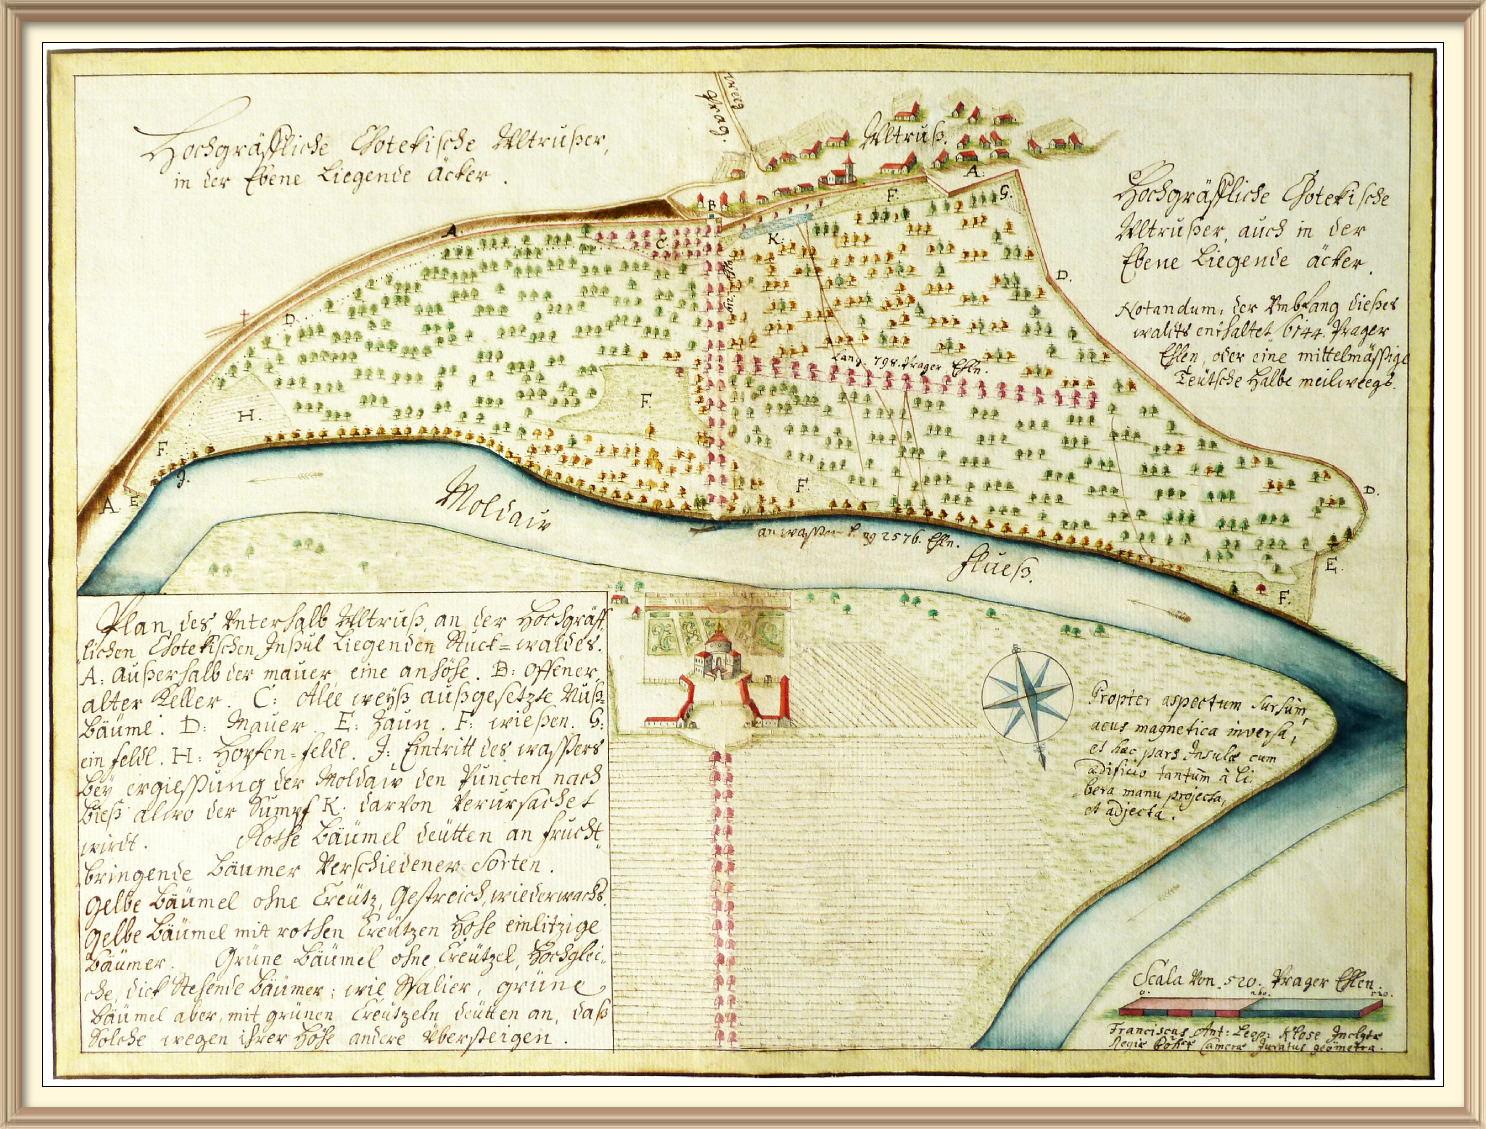 Hochgräffliche Chotekische Weltrußer,
in der Ebene Liegende Äcker.
weeg
Prag.
Weltruß.
Hochgräffliche Chotekische
Weltrußer, auch in der
Ebene Liegende äcker.
Notandum, der Umbfang dießes
walds enthaltet 6144. Prager
Ehlen, oder eine mittelmässige
Teütsche halbe meilweegs.
A.
F.
A.
G.
B
K.
C
A.
D.
D.
Lang. 798. Prager Ehln.
F.
H.
F.
J.
A.
E
F.
D.
E.
F.
Moldaw
an wasser lang 2576. Ehln.
Flueß.
Plan des Unterhalb Weltruß an der Hochgräff-
lichen Chotekischen Insul Liegenden Stuck=waldes.
A: Außerhalb der mauer eine anhöhe. B: offener
alter Keller. C: Alle weyß außgesetzte Nuß-
Bäume. D: Mauer E: Zaun. F: wießen. G:
ein feldt. H: Hopfen=feldt. J: Eintritt des wassers
bey ergiessung der Moldaw den Puncten nach
bieß alwo der Sumpf K: darvon Verursachet
wirdt. Rothe bäumel deütten an frucht-
bringende bäumer Verschiedener Sorten.
Gelbe bäumel ohne Creütz, Gestreich, wiederwachs.
Gelbe Bäumel mit rothen Creützen Hohe einlitzige
bäumer. Grüne bäumel ohne Creützel, Hochglei-
che, dick Stehende bäumer; wie Spalier, grüne
bäumel aber, mit grünen Creützeln deütten an, daß
Solche wegen ihrer Höhe andere Übersteigen.
Propter aspectum sursum,
acus magnetica inversa,
et hæc pars Insulæ cum
ædificio tantum à li-
bera manu projecta,
et adjecta.
Scala Von 520. Prager Ehlen.
0.
260.
520.
Franciscus Ant: Leop: Klose Inclytæ
Regiæ Bohes Cameræ Juratus geometra.